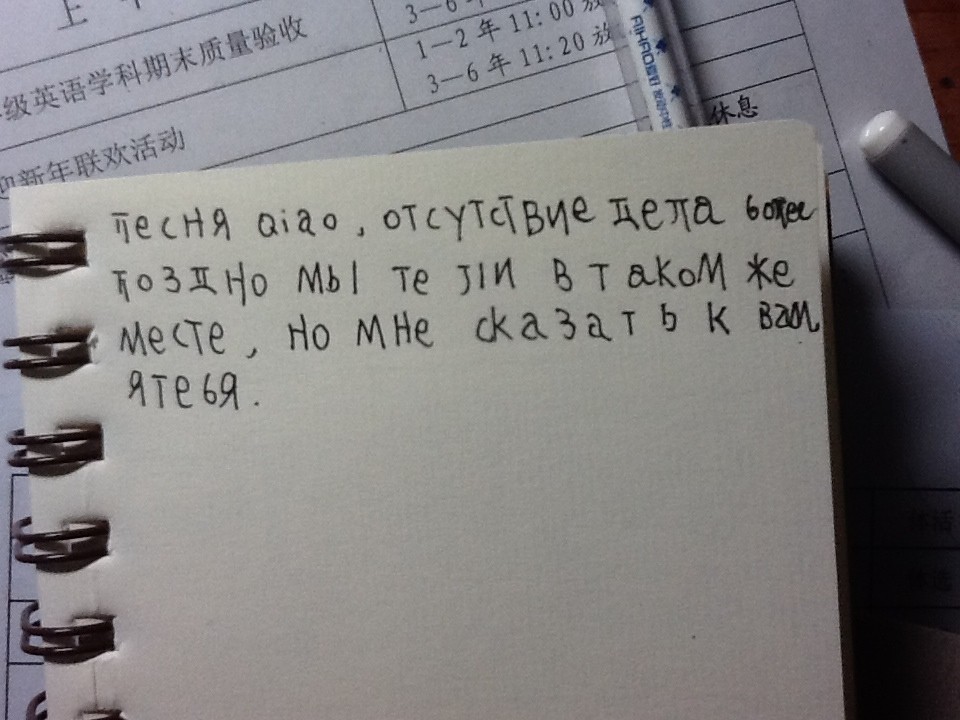 上
3—6年
级英语学科期末质量验收
1—2年11:00放
3—6年11:20放
迎新年联欢活动
AIHAO爱好
休息
песня qiao, отсутствие дела более
поздно мы те ли в таком же
месте, но мне сказать к вам
ятебя.